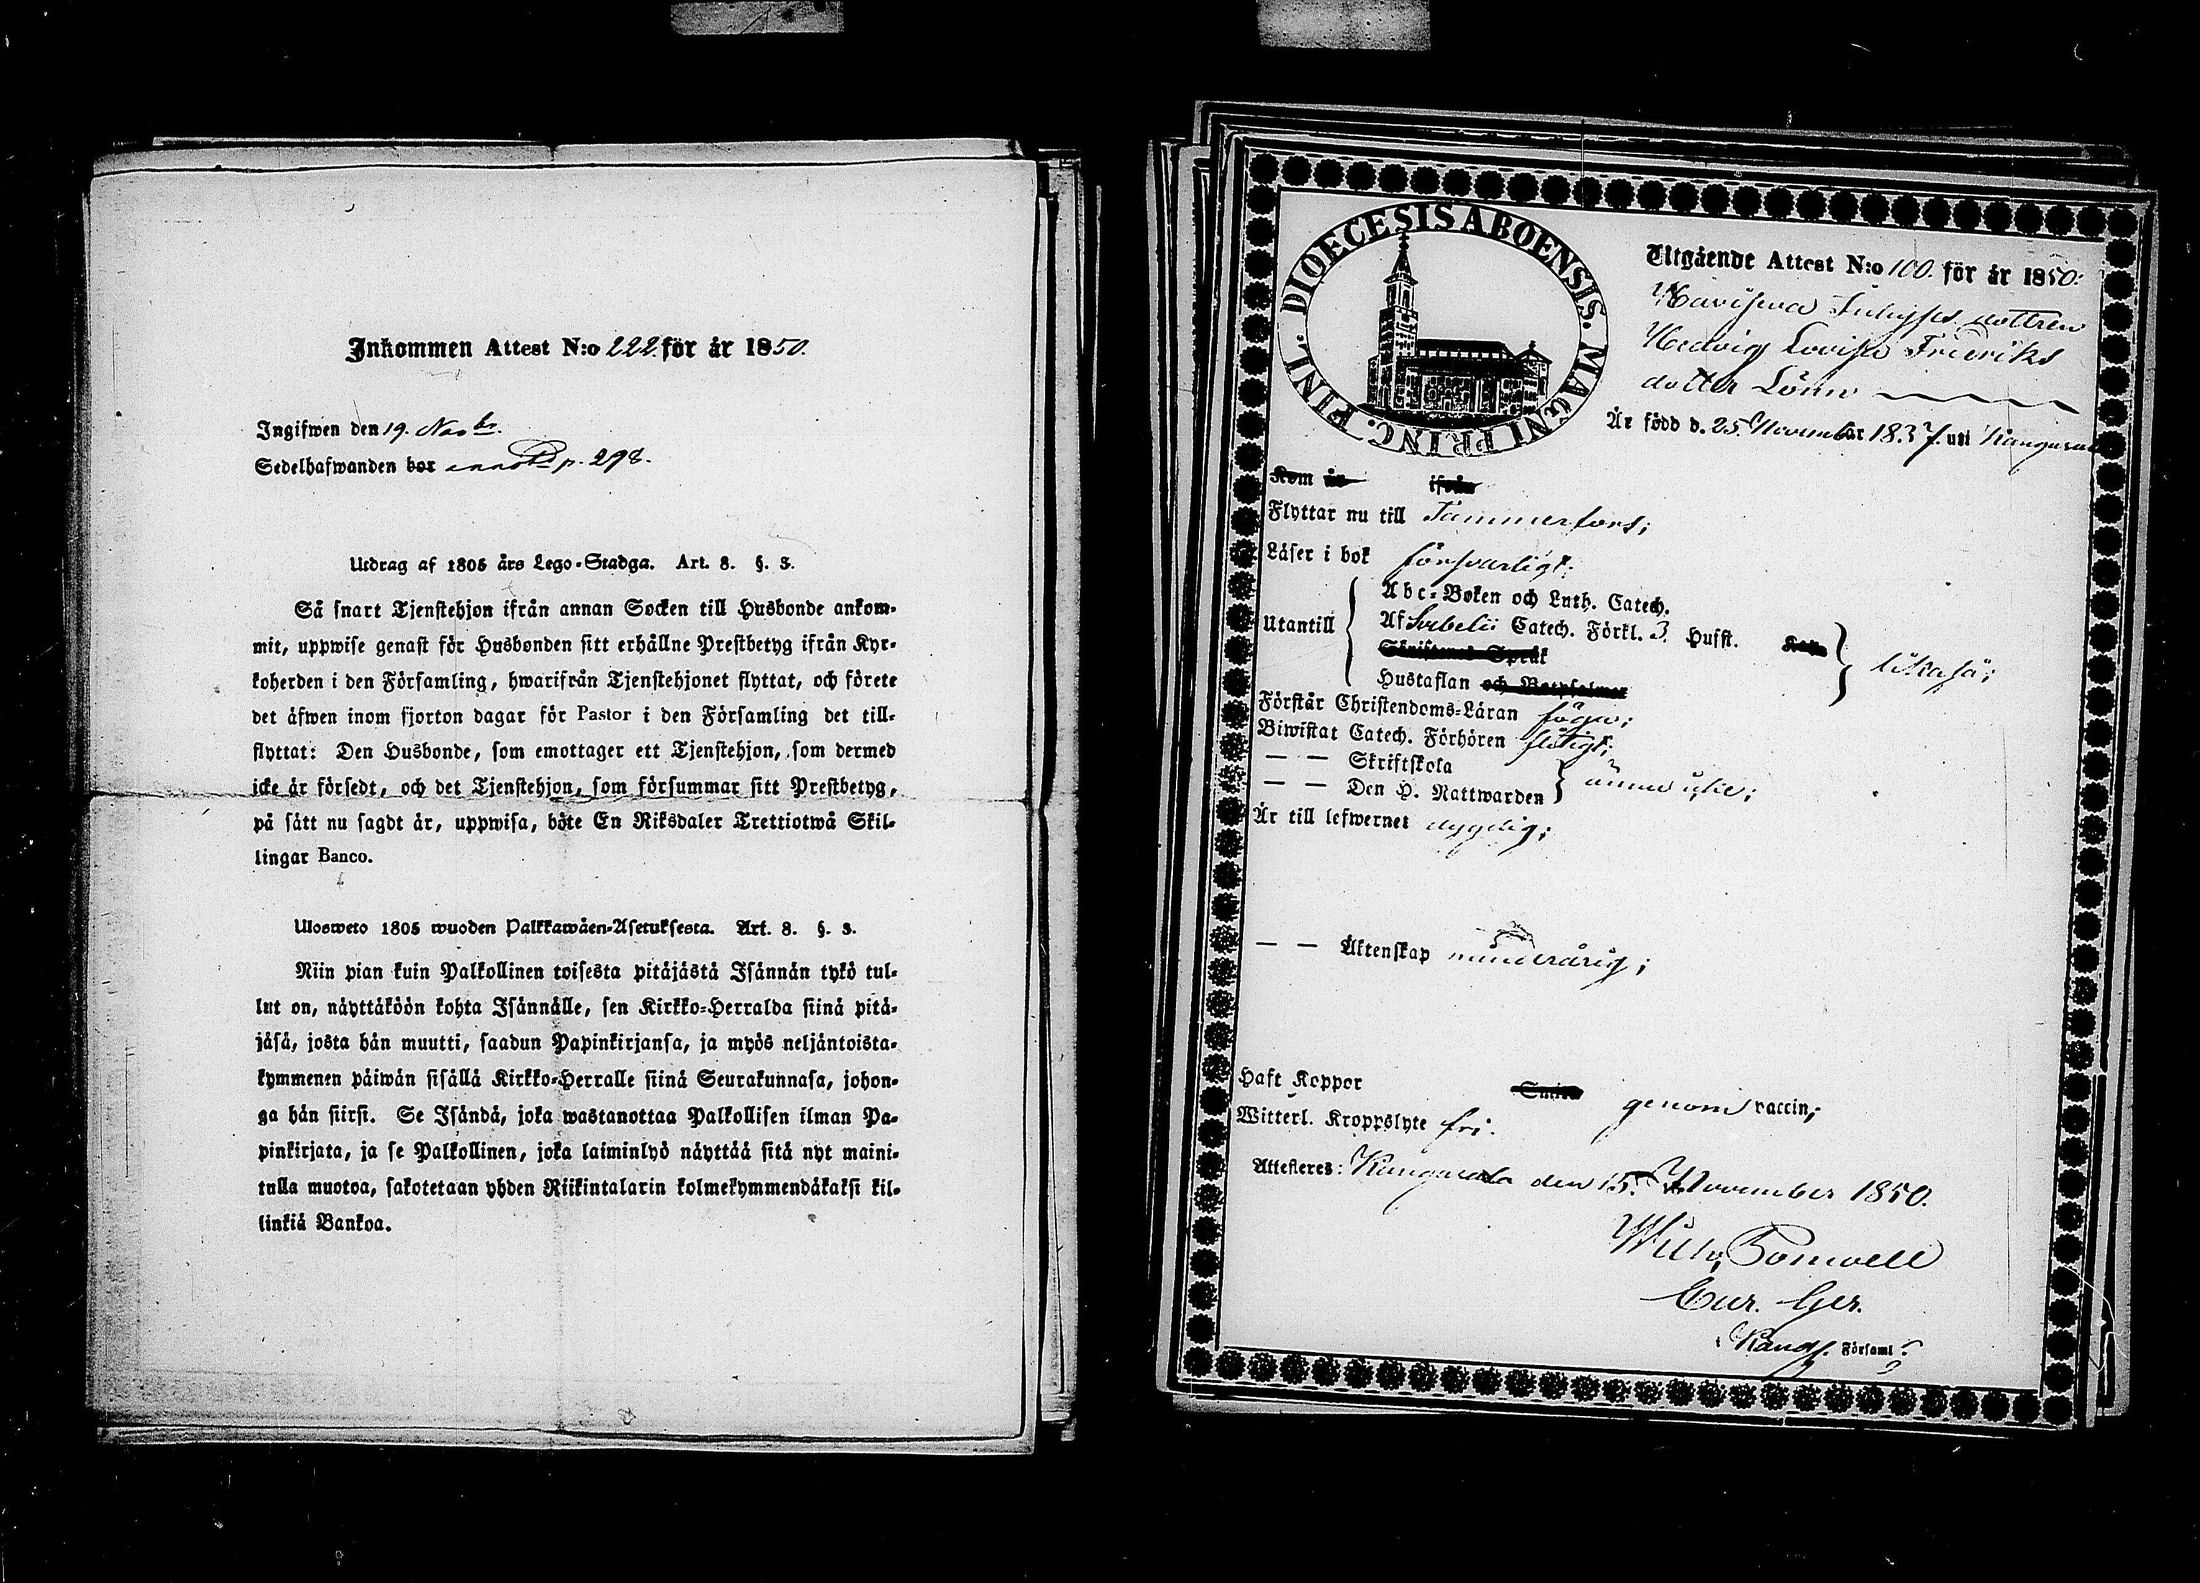 Inkommen Attest N:o 222. för år 1850.
Ingifwen den 19. Novbr.
Sedelhafwanden bor p. 298.
Utdrag af 1805 års Lego-Stadga. Art. 8. §. 3.
Så snart Tjenstehjon ifrån annan Socken till Husbonde ankom-
mit, uppwise genast för Husbonden sitt erhållne Prestbetyg ifrån Kyr-
koherden i den Församling, hwarifrån Tjenstehjonet flyttat, och förete
det äfwen inom fjorton dagar för Pastor i den Församling det till-
flyttat: Den Husbonde, som emottager ett Tjenstehjon, som dermed
icke är försedt, och det Tjenstehjon, som försummar sitt Prestbetyg,
på sätt nu sagdt är, uppwisa, böte En Riksdaler Trettiotwå Skil-
lingar Banco.
Ulosweto 1805 wuoden Palkkawäen-Asetuksesta. Art. 8. §. 3.
Niin pian kuin Palkollinen toisesta pitäjästä Isännän tykö tul-
lut on, näyttäköön kohta Isännälle, sen Kirkko-Herralda siinä pitä-
jäsä, josta hän muutti, saadun Papinkirjansa, ja myös neljäntoista-
kymmenen päiwän sisällä Kirkko-Herralle siinä Seurakunnasa, johon-
ga hän siirsi. Se Isändä, joka wastanottaa Palkollisen ilman Pa-
pinkirjata, ja se Palkollinen, joka laiminlyö näyttää sitä nyt maini-
tulla muotoa, sakotetaan yhden Riikintalarin kolmekymmendäkaksi kil-
linkiä Bankoa.
DIOECESIS ABOENSIS. MAGNI PRINC. FINL.
Utgående Attest N:o 100. för år 1850.
dottren
Hedvig Lovisa Fredriks
dotter Lönn
Är född d. 25 November 1837. uti Kangasala
Kom år ifrån
Flyttar nu till Tammerfors;
Läser i bok försvarligt;
Utantill
Abc-Boken och Luth. Catech.
Af Svebelii Catech. Förkl. 3. Husst.
Skriftenes Språk
Hustaflan och Botpsalmer
likaså;
Förstår Christendoms-Läran
Biwistat Catech. Förhören flitigt;
— — Skriftskola
— — Den H. Nattwarden
ännu icke;
Är till lefwernet dygdig;
— — Äktenskap minderårig;
Haft Koppor genom vaccin;
Witterl. Kroppslyte fri.
Attesteres: Kangasala den 15. November 1850.
Wilh.
Cur. Ger.
Kangs. Församl.